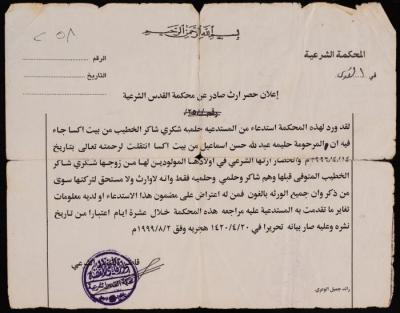 بسم الله الرحمن الرحيم
المحكمة الشرعية
في القدس
الرقم
التاريخ
إعلان حصر ارث صادر عن محكمة القدس الشرعية
لقد ورد لهذه المحكمة استدعاء من المستدعيه حلميه شكري شاكر الخطيب من بيت اكسا جاء
فيه ان المرحومة حليمه عبد الله حسن اسماعيل من بيت اكسا انتقلت لرحمته تعالى بتاريخ
وانحصر ارثها الشرعي في اولادها المولودين لها من زوجها شكري شاكر
الخطيب المتوفى قبلها وهم شاكر وحلمي وحلميه فقط وانه لاوارث ولا مستحق لتركتها سوى
من ذكر وان جميع الورثه بالغون فمن له اعتراض على مضمون هذا الاستدعاء او لديه معلومات
تغاير ما تقدمت به المستدعية عليه مراجعه هذه المحكمة خلال عشرة ايام اعتبارا من تاريخ
نشره وعليه صار بيانه تحريرا في ١٤٢٠/٤/٢٠ هجريه وفق ١٩٩٩/٨/٢م